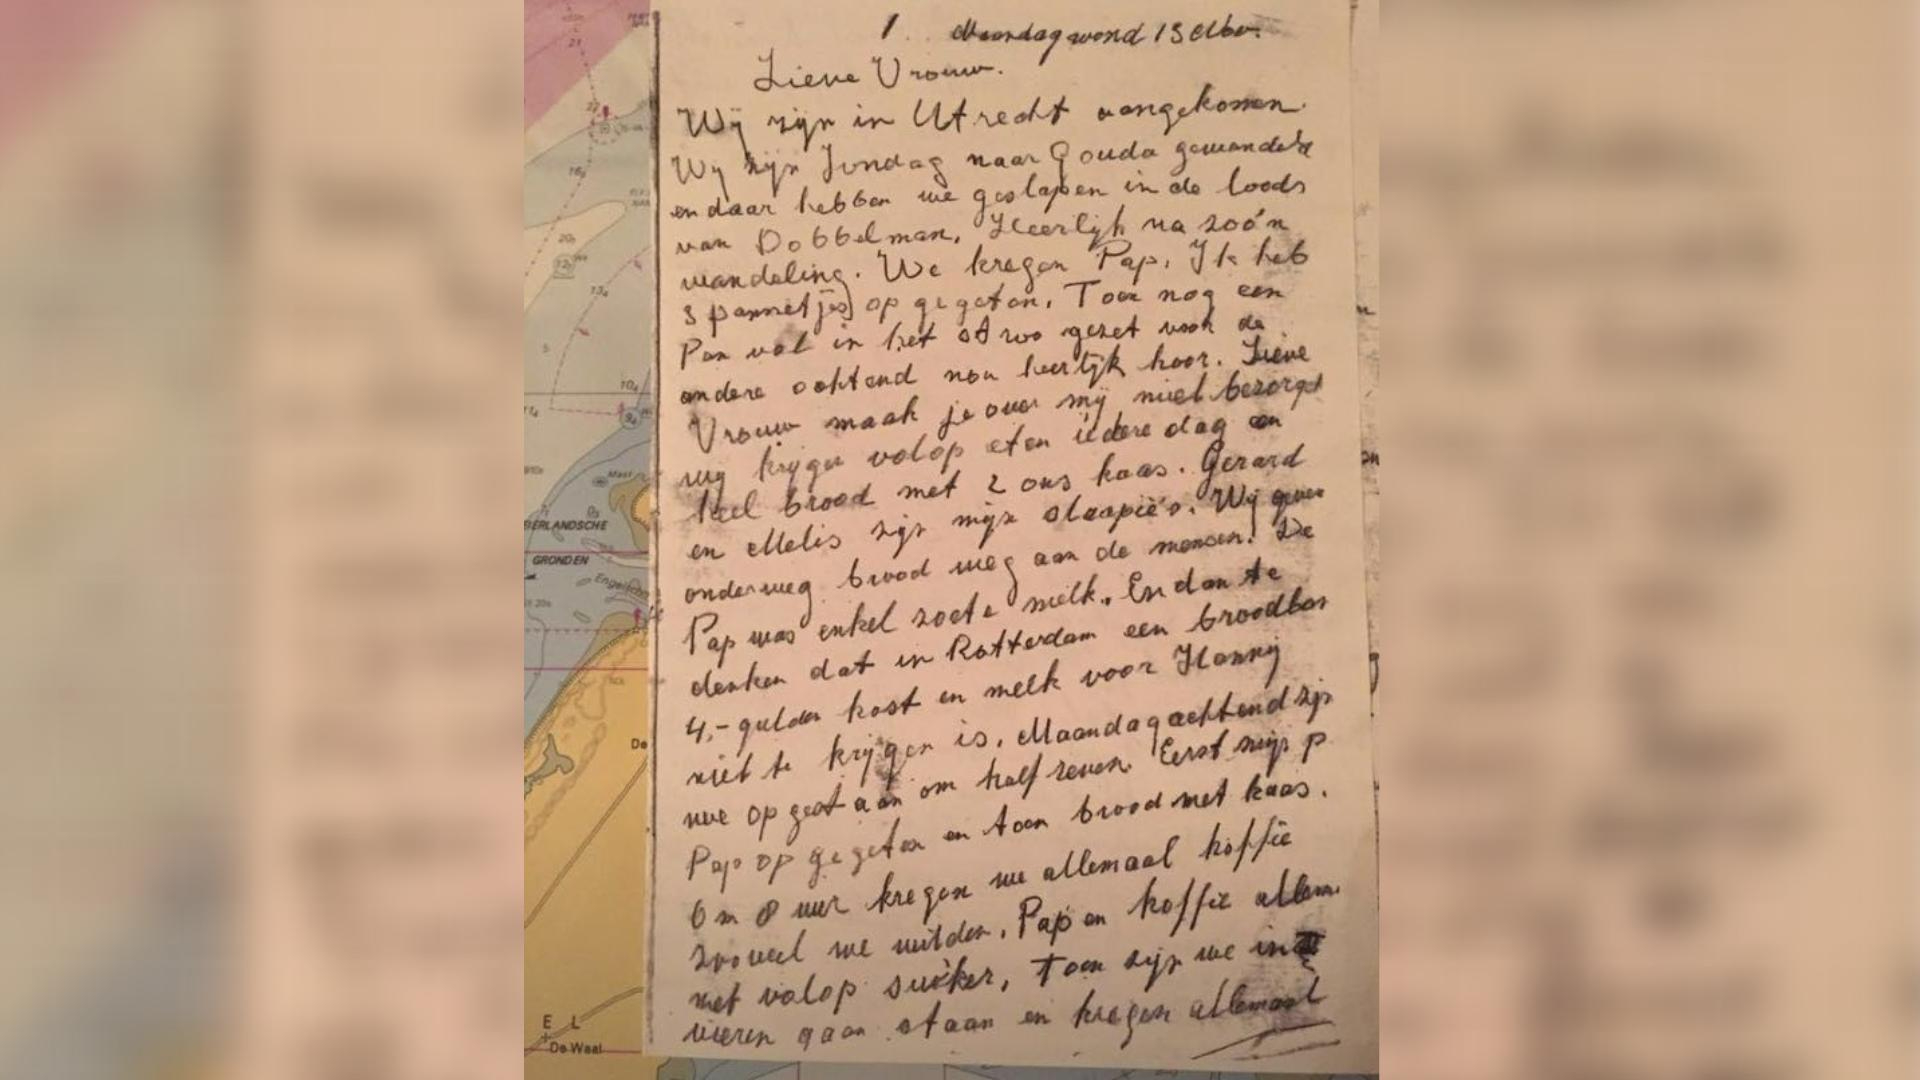 1. Maandagavond 13 Nov.
Lieve Vrouw.
Wij zijn in Utrecht aangekomen.
Wij zijn Zondag naar Gouda gewandeld
en daar hebben we geslapen in de loods
van Dobbelman. Heerlijk na zoo'n
wandeling. We kregen Pap. Ik heb
3 pannetjes op gegeten. Toen nog een
Pan vol in het stroo gezet voor de
andere ochtend nou heerlijk hoor. Lieve
Vrouw maak je over mij niet bezorgt
wij krijgen volop eten iedere dag een
heel brood met 2 ons kaas. Gerard
en Melis zijn mijn slaapie's. Wij geven
onderweg brood weg aan de mensen. De
Pap was enkel zoete melk. En dan te
denken dat in Rotterdam een broodbon
4,- gulden kost en melk voor Hanny
niet te krijgen is. Maandagochtend zijn
we op gestaan om half zeven. Eerst mijn p
Pap op gegeten en toen brood met kaas.
Om 8 uur kregen we allemaal koffie
zooveel we wilden. Pap en koffie allem.
met volop suiker. Toen zijn we in
vieren gaan staan en kregen allemaal
22
21
16
20
12
13
5
10
BERLANDSCHE
GRONDEN
De
E L
De Waal